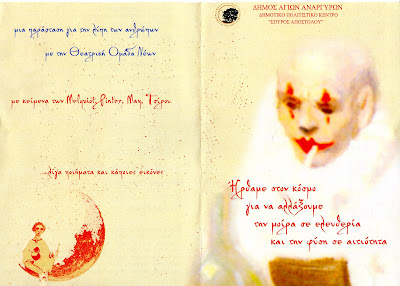 μια παράσταση για την λύπη των ανθρώπων
με την Θεατρική Ομάδα Νέων
με κείμενα των Μπέκετ, Pinter, Μαη, Τσίρου
...λίγα ποιήματα και κάποιες εικόνες
ΔΗΜΟΣ ΑΓΙΩΝ ΑΝΑΡΓΥΡΩΝ
ΔΗΜΟΤΙΚΟ ΠΟΛΙΤΙΣΤΙΚΟ ΚΕΝΤΡΟ
"ΣΠΥΡΟΣ ΑΠΟΣΤΟΛΟΥ"
Ήρθαμε στον κόσμο
για να αλλάξουμε
την μοίρα σε ελευθερία
και την φύση σε αιτιότητα